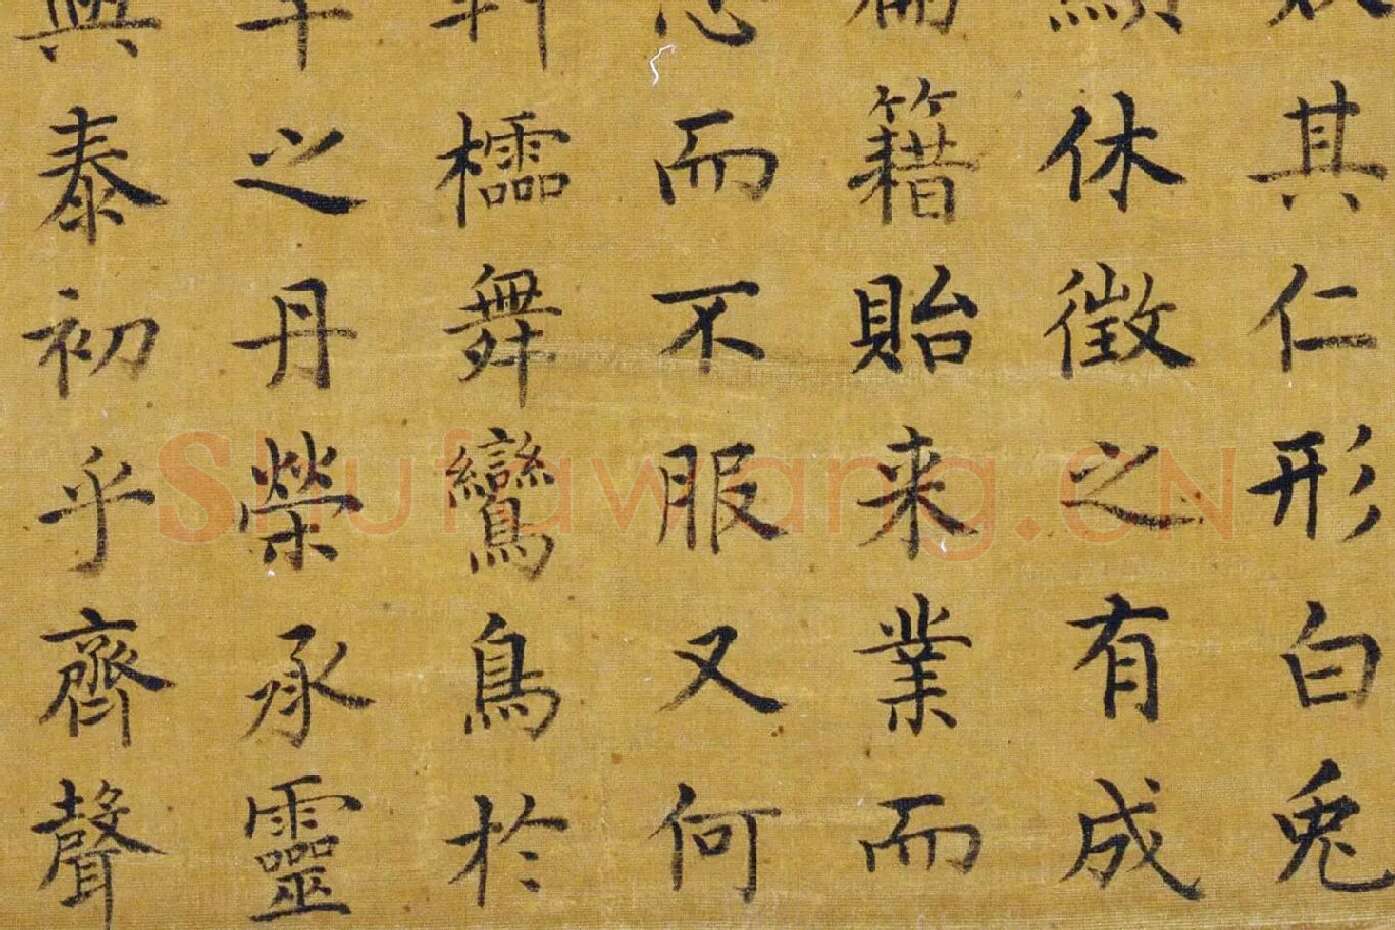 其仁形白兔
顯休徵之有成
籍貽来業而
而不服又何
軒櫺舞鸞鳥於
之丹榮承靈
興泰初乎齊聲
Shufawang.CN